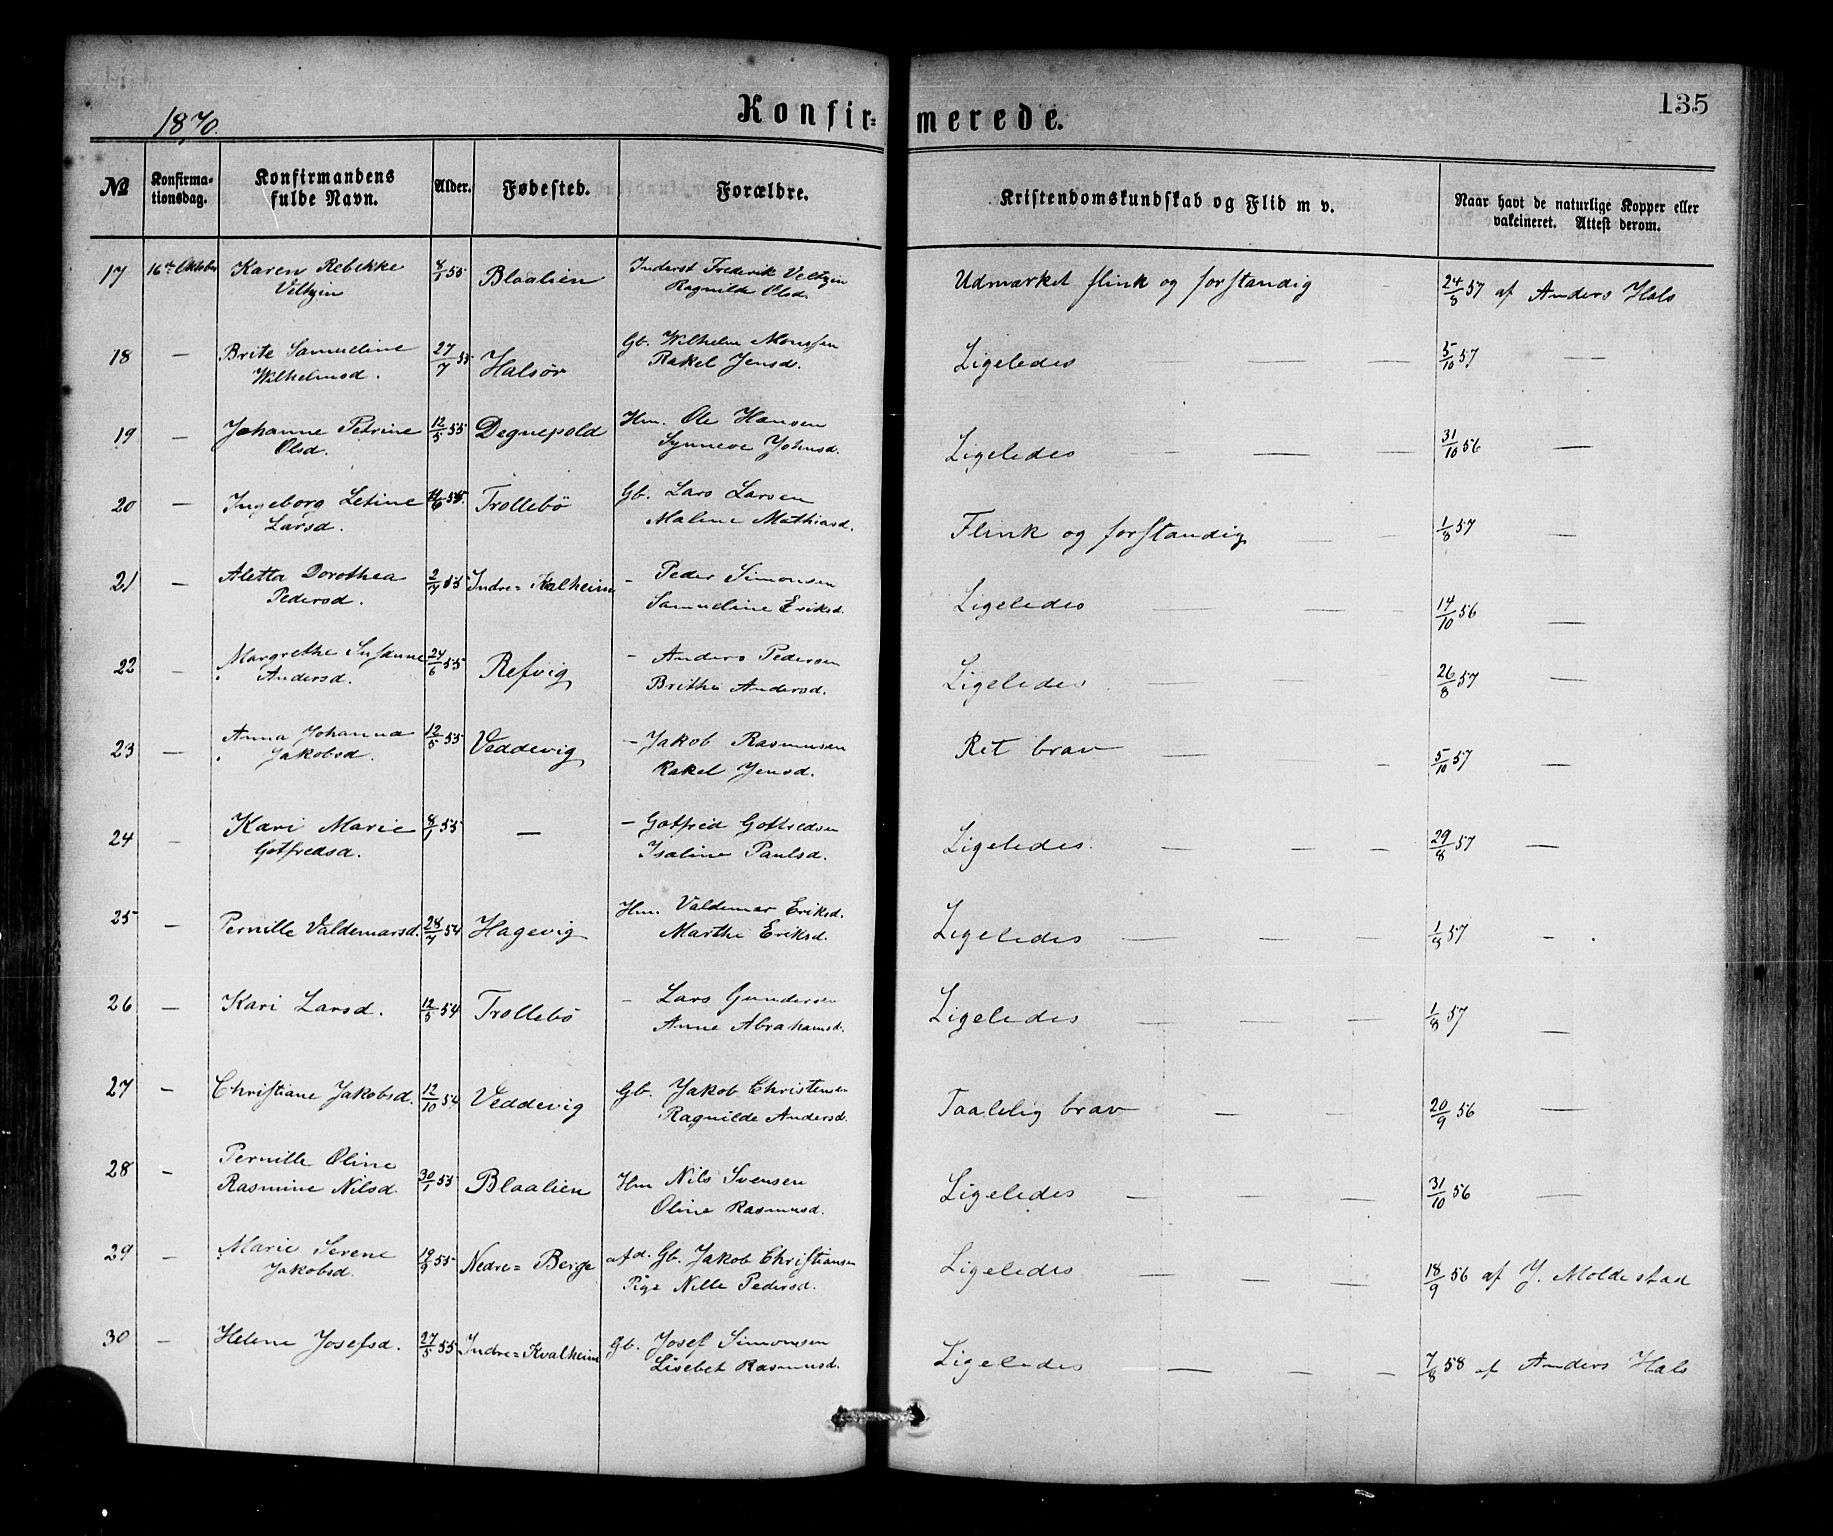 1870.
Konfir= merede.
135
№ Konfirma-tionsdag. Konfirmandens fulde Navn. Alder. Fødested. Forældre. Kristendomskundskab og Flid m v. Naar havt de naturlige Kopper eller vakcineret. Attest derom.
17 16de Oktober Karen Rebekke 8/1 55 Blaalien Inderst Frederik Veltzin Udmærket flink og forstandig 24/8 57 af Anders Hals
Veltzin Ragnilde Olsd.
18 — Brite Samueline 27/7 55 Halsør Gb. Wilhelm Monssen Ligeledes — — 5/10 57 —
Wilhelmsd. Rakel Jensd.
19 — Johanne Petrine 12/5 55 Degnepold Hm. Ole Hansen Ligeledes — — — 31/10 56 —
Olsd. Synneve Johnsd.
20 — Ingeborg Letine /6 55. Trollebø Gb. Lars Larsen Flink og forstandig — — 1/8 57 —
Larsd. Malene Mathiasd.
21 — Aletta Dorothea 2/7 55 Indre= Kvalheim — Peder Simonsen Ligeledes — — — 14/10 56 —
Pedersd. Samueline Eriksd.
22 — Margrethe Susanne 24/6 55 Refvig — Anders Pedersen Ligeledes — — — 26/8 57 —
Andersd. Brithe Andersd.
23 — Anna Johanna 12/5 55 Veddevig — Jakob Rasmusen Ret brav — — — 5/10 57 —
Jakobsd. Rakel Jensd.
24 — Kari Marie 8/1 55 — — Gotfred Gotfredsen Ligeledes. — — — 29/8 57 —
Gotfredsd. Isaline Paulsd.
25 — Pernille Valdemarsd. 28/7 54 Hagevig Hm. Valdemar Eriksd. Ligeledes — — — 1/8 57 —
Marthe Eriksd.
26 — Kari Larsd. 12/5 54 Trollebø — Lars Gundersen Ligeledes — — — 1/8 57 —
Anne Abrahamsd.
27 — Christiane Jakobsd. 12/10 54 Veddevig Gb. Jakob Christensen Taalelig brav — — 20/9 56 —
Ragnilde Andersd.
28 — Pernille Oline 30/1 55 Blaalien Hm Nils Svensen Ligeledes — — — 31/10 56 —
Rasmine Nilsd. Oline Rasmusd.
29 — Marie Serene 19/9 55 Nedre= Berge afd. Gb. Jakob Christiansen Ligeledes — — — 18/9 56 af J. Moldestad
Jakobsd. Pige Nille Pedersd.
30 — Helene Josefsd. 27/5 55 Indre= Kvalheim Gb. Josef Simonsen Ligeledes — — — 7/8 58 af Anders Hals
Lisebet Rasmusd.